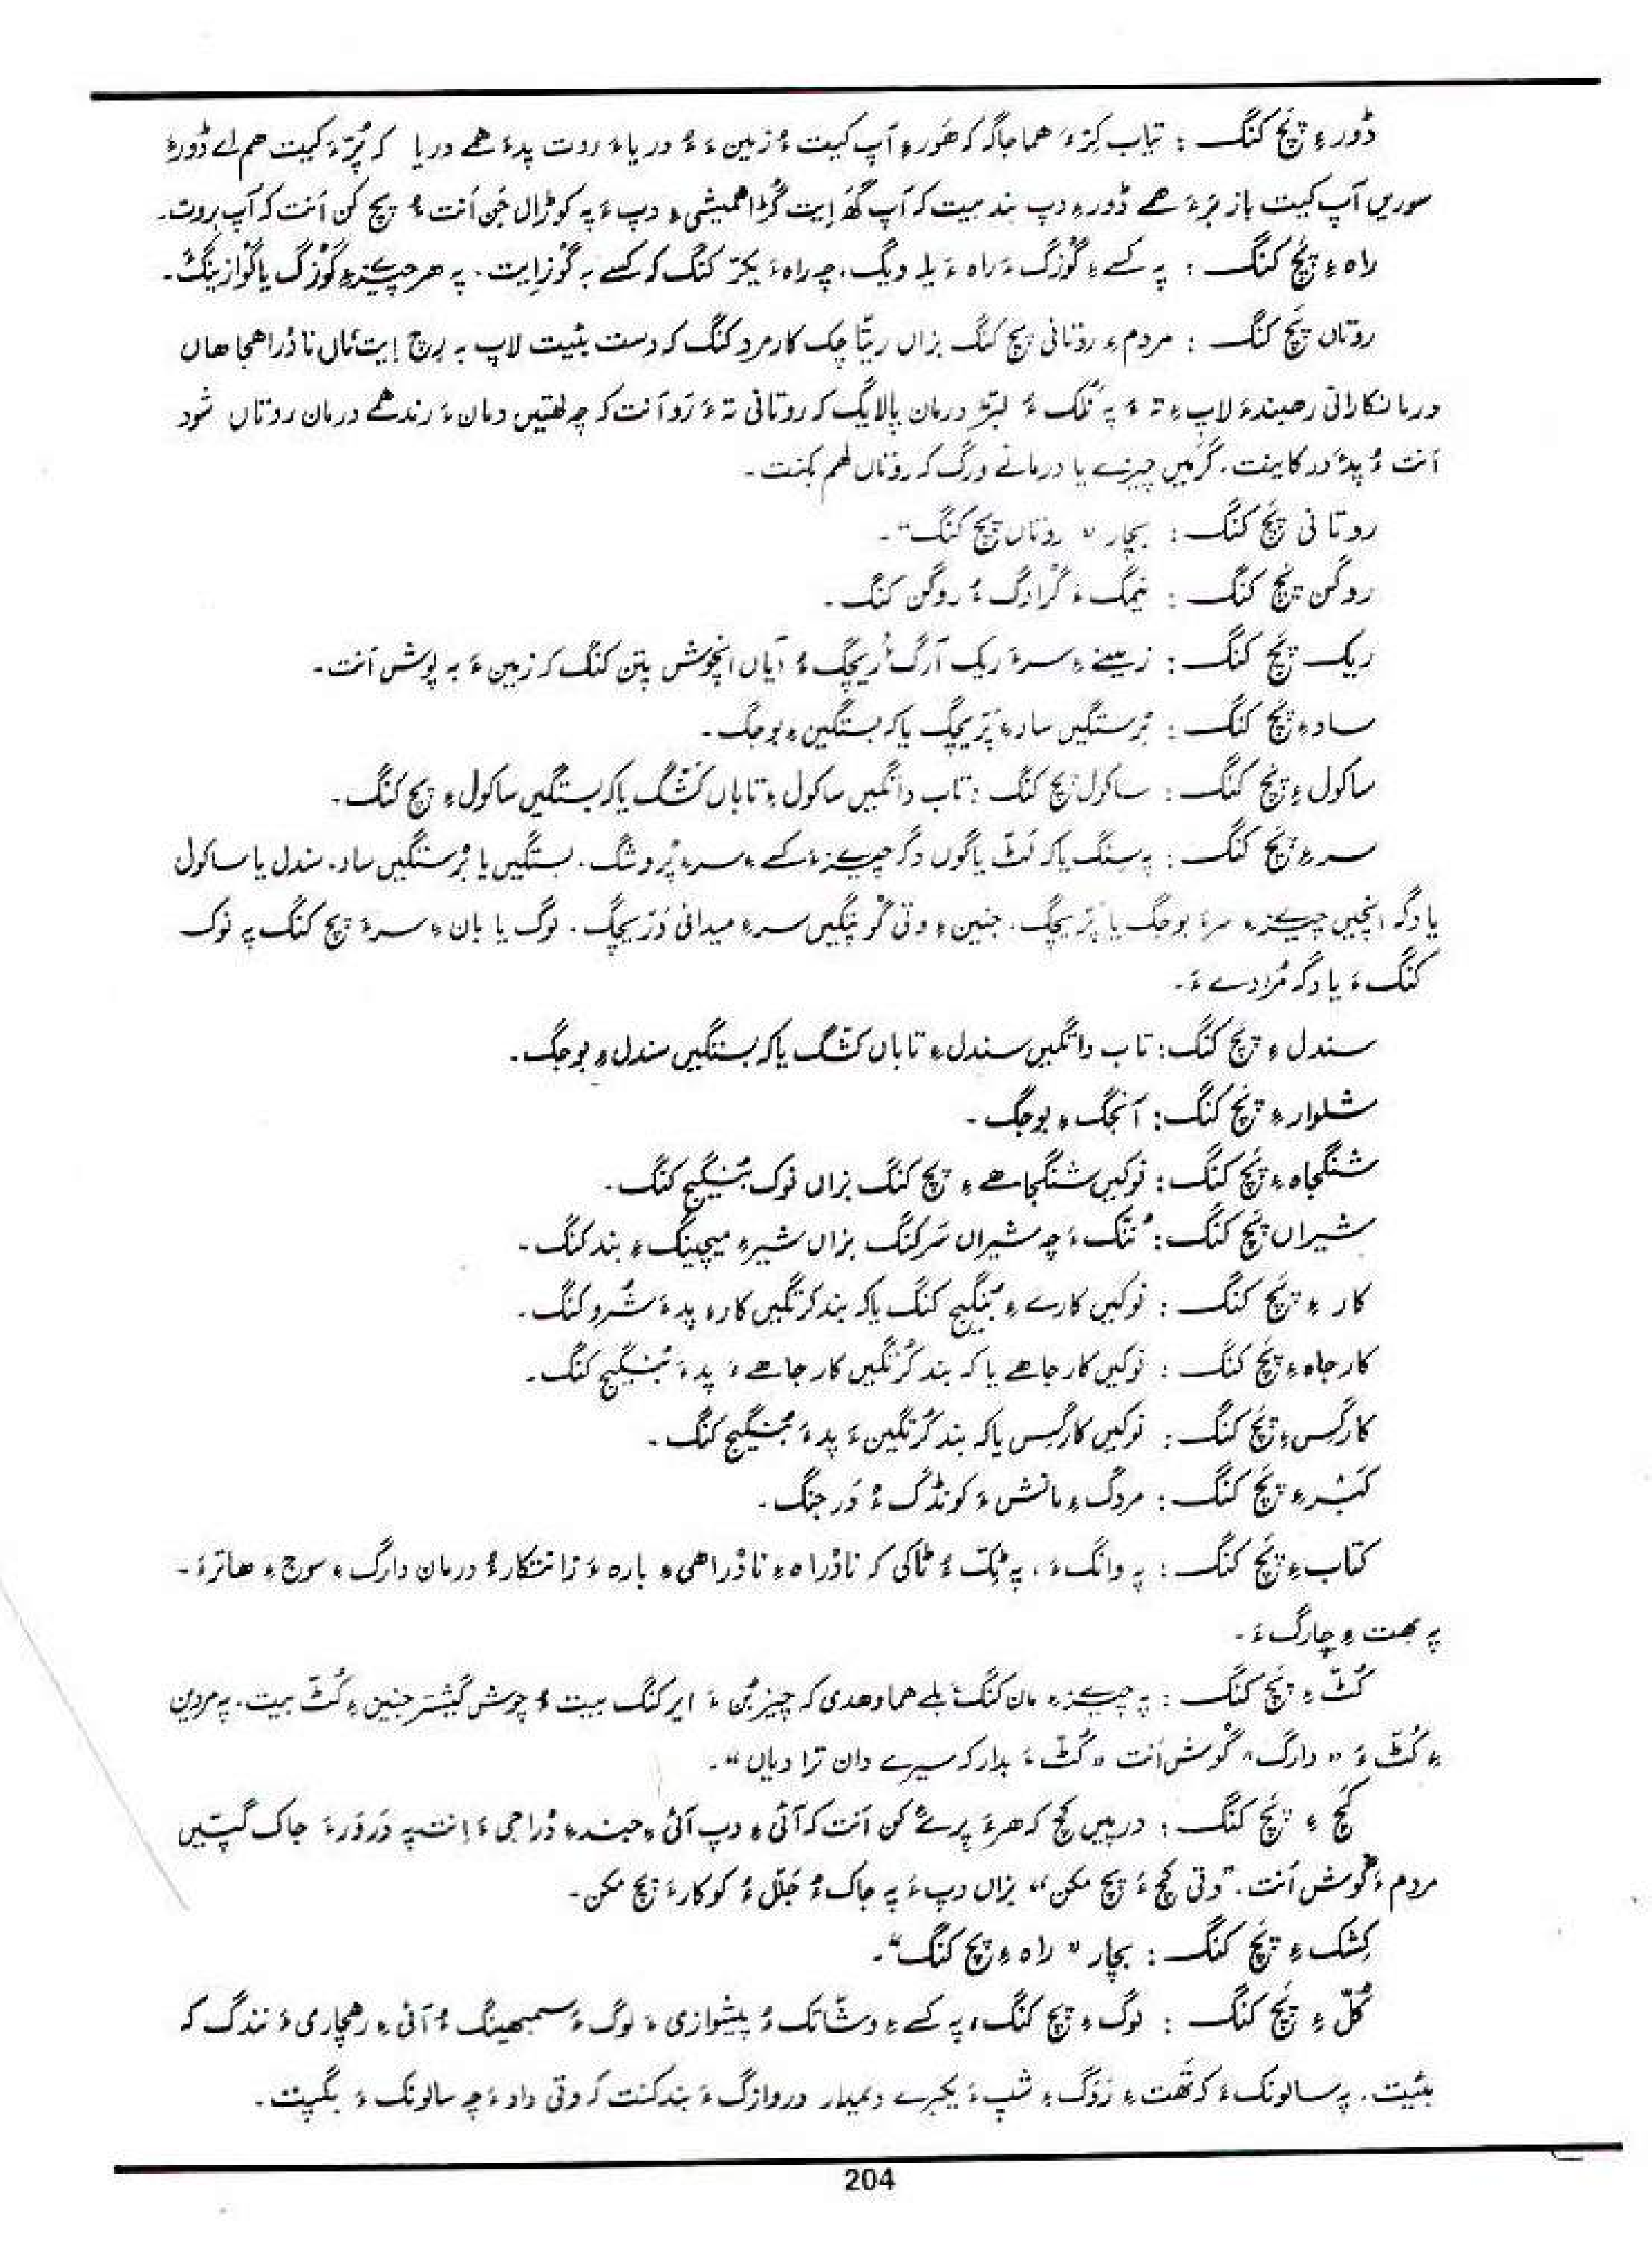 ڈورءِ پَچ کنگ : تیاب کِرّءَ ھما جاگہ کہ ھَورءِ آپ کیت ءُ زمین ءَ ءُ دریاءَ روت پدءَ ھے دریا کہ پُرّءَ کیت ھم اے ڈورءَ
سوریں آپ کیت باز برءَ ھے ڈورءِ دپ بند بیت کہ آپ گھر اِیت گُڑا ھمیشیءِ دپ ءَ پہ کوڈال جَن اَنت ءُ پچ کن اَنت کہ آپ بروت۔
راہ ءِ پَچ کنگ : پہ کسے ءِ گْوَزگ ءَ راہ ءَ یلہ دیگ، چہ راہ ءَ یکّر کنگ کہ کسے بہ گْوزایت۔ پہ ھر چیزءِ گْوَزگ یا گْوازینگءَ۔
روتاں پَچ کنگ : مردم ءِ روتانی پچ کنگ بزاں ریتّا چک کارمرد کنگ کہ دست بئیت لاپ بہ رچ اِیت ئاں نا ڈراھجاھاں
درمانکارانی رھبندءَ لاپ ءِ تہ ءَ پہ نُلک ءُ لِتّر درمان پالایگ کہ روتانی تہ ءَ رَو اَنت کہ چہ لھتیں دمان ءَ رند ھے درمان روتاں شود
اَنت ءُ پدءَ در کاینت۔ گرمیں چیزے یا درمانے ورگ کہ روتاں لھم بکنت۔
روتانی پَچ کنگ : بچار " روتاں پچ کنگ"۔
روگن پَچ کنگ : نیمگ ءَ گرادگ ءُ روگن کنگ۔
ریک پَچ کنگ : زمینے ءِ سرءَ ریک آرگ ءُ ریچگ ءُ آیاں انچوش پتن کنگ کہ زمین ءَ بہ پوش اَنت۔
سادءِ پَچ کنگ : بُرستگیں سادءِ پَتریچگ یا کہ بستگین ءِ بوجگ۔
ساکول ءِ پَچ کنگ : ساکول پچ کنگ : تاب داتگیں ساکول ءِ تاباں کَشّگ یا کہ بستگیں ساکول ءِ پچ کنگ۔
سرءِ پَچ کنگ : پہ سِنگ یا کہ لَٹّ یا گوں دگہ چیزءَ کسے ءِ سرءِ پُروشگ۔ بستگیں یا بُرستگیں ساد، سندل یا ساکول
یا دگہ انچیں چیزءِ سرءِ بوجگ یا پَتریچگ۔ جنین ءِ وتی گْوپتگیں سرءِ میدانی دَرّیچگ۔ لوگ یا بان ءِ سرءَ پچ کنگ پہ نوک
کنگ ءَ یا دگہ مُرادے ءَ۔
سندل ءِ پَچ کنگ: تاب داتگیں سندل ءِ تاباں کشّگ یا کہ بستگیں سندل ءِ بوجگ۔
شلوارءِ پَچ کنگ: آنجگ ءِ بوجگ۔
شنگجاہ ءِ پَچ کنگ: نوکیں شنگجاھے ءِ پچ کنگ بزاں نوک بُنگیج کنگ۔
شیراں پَچ کنگ: نُنّک ءَ چہ شیراں سَرکنگ بزاں شیرءِ میچینگ ءِ بند کنگ۔
کار ءِ پَچ کنگ : نوکیں کارے ءِ بُنگیج کنگ یا کہ بند کرتگیں کارءِ پدءَ شُرو کنگ۔
کارجاہ ءِ پَچ کنگ : نوکیں کارجاھے یا کہ بند کُرتگیں کارجاھے ءَ پدءَ بُنگیج کنگ۔
کارگس ءِ پَچ کنگ : نوکیں کارگس یا کہ بند کُرتگین ءَ پدءَ بُنگیج کنگ۔
کَبْرءِ پَچ کنگ : مردگ ءِ مانش ءَ کونڈگ ءُ دَر جنگ۔
کتاب ءِ پَچ کنگ : پہ وانگ ءَ، پہ ٹِکّ ءُ ٹاکی کہ نادْراہ ءِ نادْراھی ءِ بارہ ءَ زانتکارءُ درمان دارگ ءِ سوج ءِ ھاترءَ۔
پہ بھت ءِ چارگ ءَ۔
کُٹّ ءِ پَچ کنگ : پہ چیزءِ مان کنگ ءَ بلے ھما وھدی کہ چیز بُن ءَ ایر کنگ بیت ءُ چوش گیشتر جنین ءِ کُٹّ بیت۔ پہ مردین
ءِ کُٹّ ءَ " دارگ " گْوش اَنت " کُٹّ ءَ بدار کہ سیرے دان ترا دیاں "۔
کَچ ءِ پَچ کنگ : درپیں کچ کہ ھرءَ پرےءَ کن اَنت کہ آئی ءِ دپ آئی ءِ جندءِ دْراجی ءَ اِنت پہ دَروَرءَ جاک گپتیں
مردم ءَ گْوش اَنت۔ "وتی کچ ءَ پچ مکن" بزاں دپ ءَ پہ جاک ءُ جَلّ ءُ کوکارءَ پچ مکن۔
کِشک ءِ پَچ کنگ : بچار " راہ ءِ پچ کنگ"۔
کُلّ ءِ پَچ کنگ : لوگ ءِ پچ کنگ، پہ کسے ءِ وشّاتک ءُ پیشوازی ءَ لوگ ءَ سمبھینگ ءُ آئی ءِ رھچاری ءَ نندگ کہ
بئیت۔ پہ سالونک ءَ کہ تَھت ءِ رَوَگ ءِ شپ ءَ یکبرے دمیدار دروازگ ءَ بند کنت کہ وتی داد ءَ چہ سالونک ءَ بگیپت۔
204